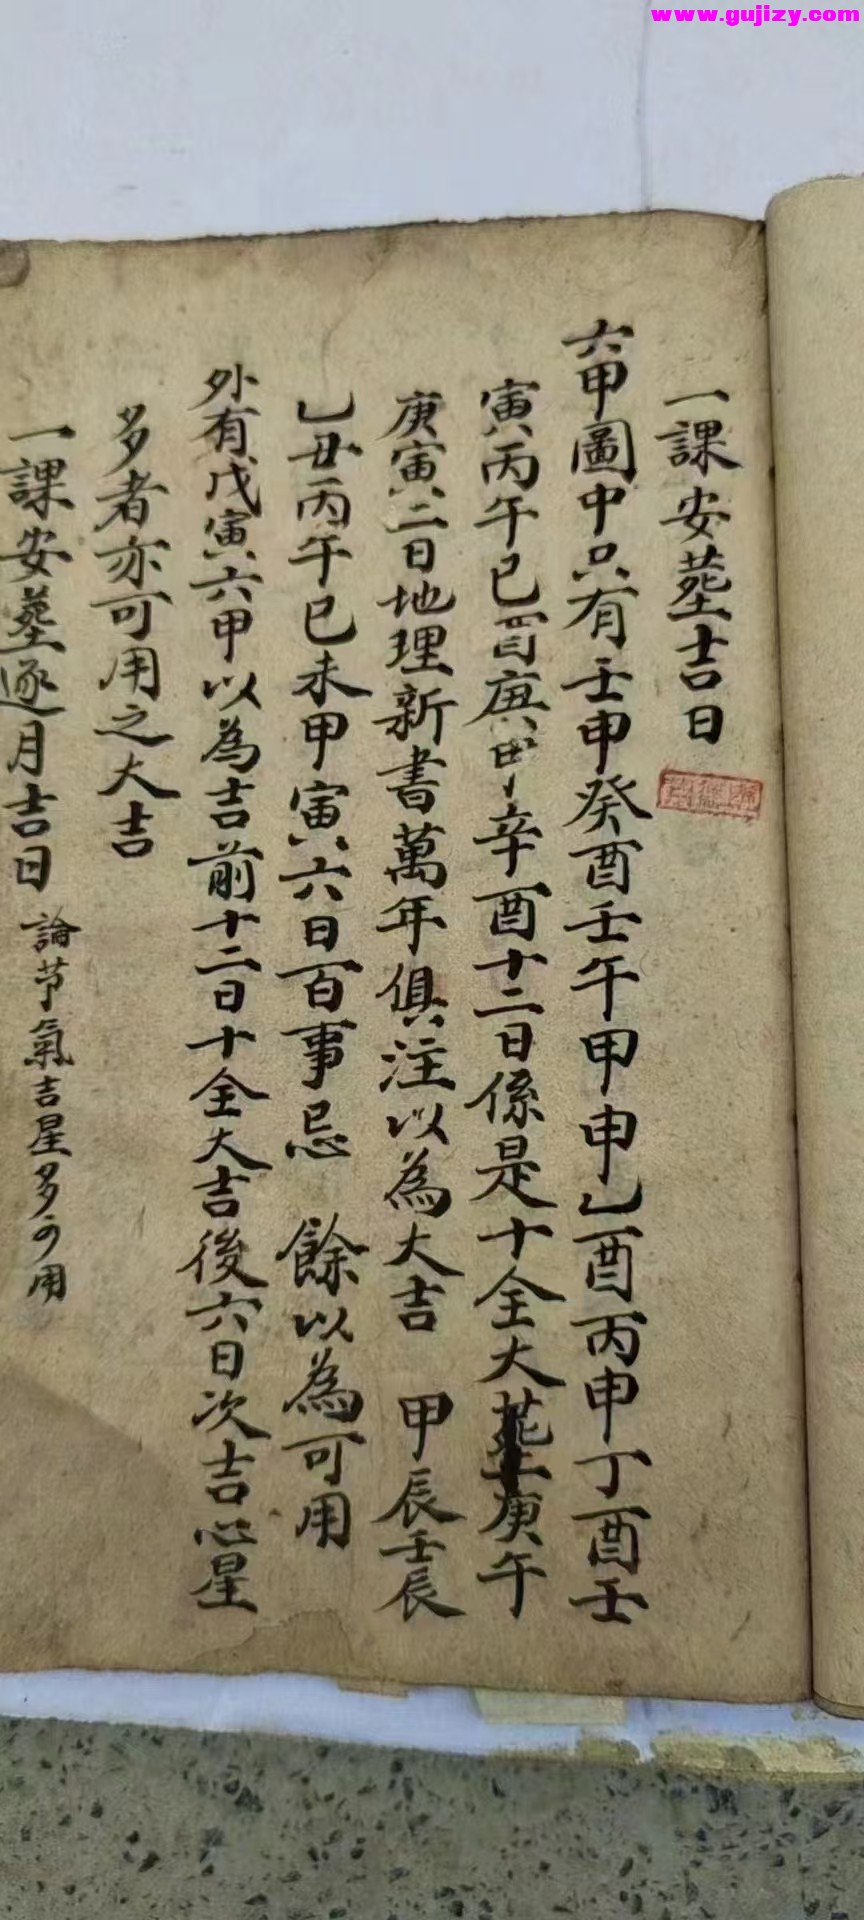 www.gujizy.com
一課安葬吉日
六甲圖中只有壬申癸酉壬午甲申乙酉丙申丁酉壬
寅丙午己酉庚申辛酉十二日係是十全大葬庚午
庚寅二日地理新書萬年俱注以為大吉 甲辰壬辰
乙丑丙午己未甲寅六日百事忌 餘以為可用
外有戊寅六甲以為吉前十二日十全大吉後六日次吉吣星
多者亦可用之大吉
一課安葬逐月吉日 論节氣吉星多可用